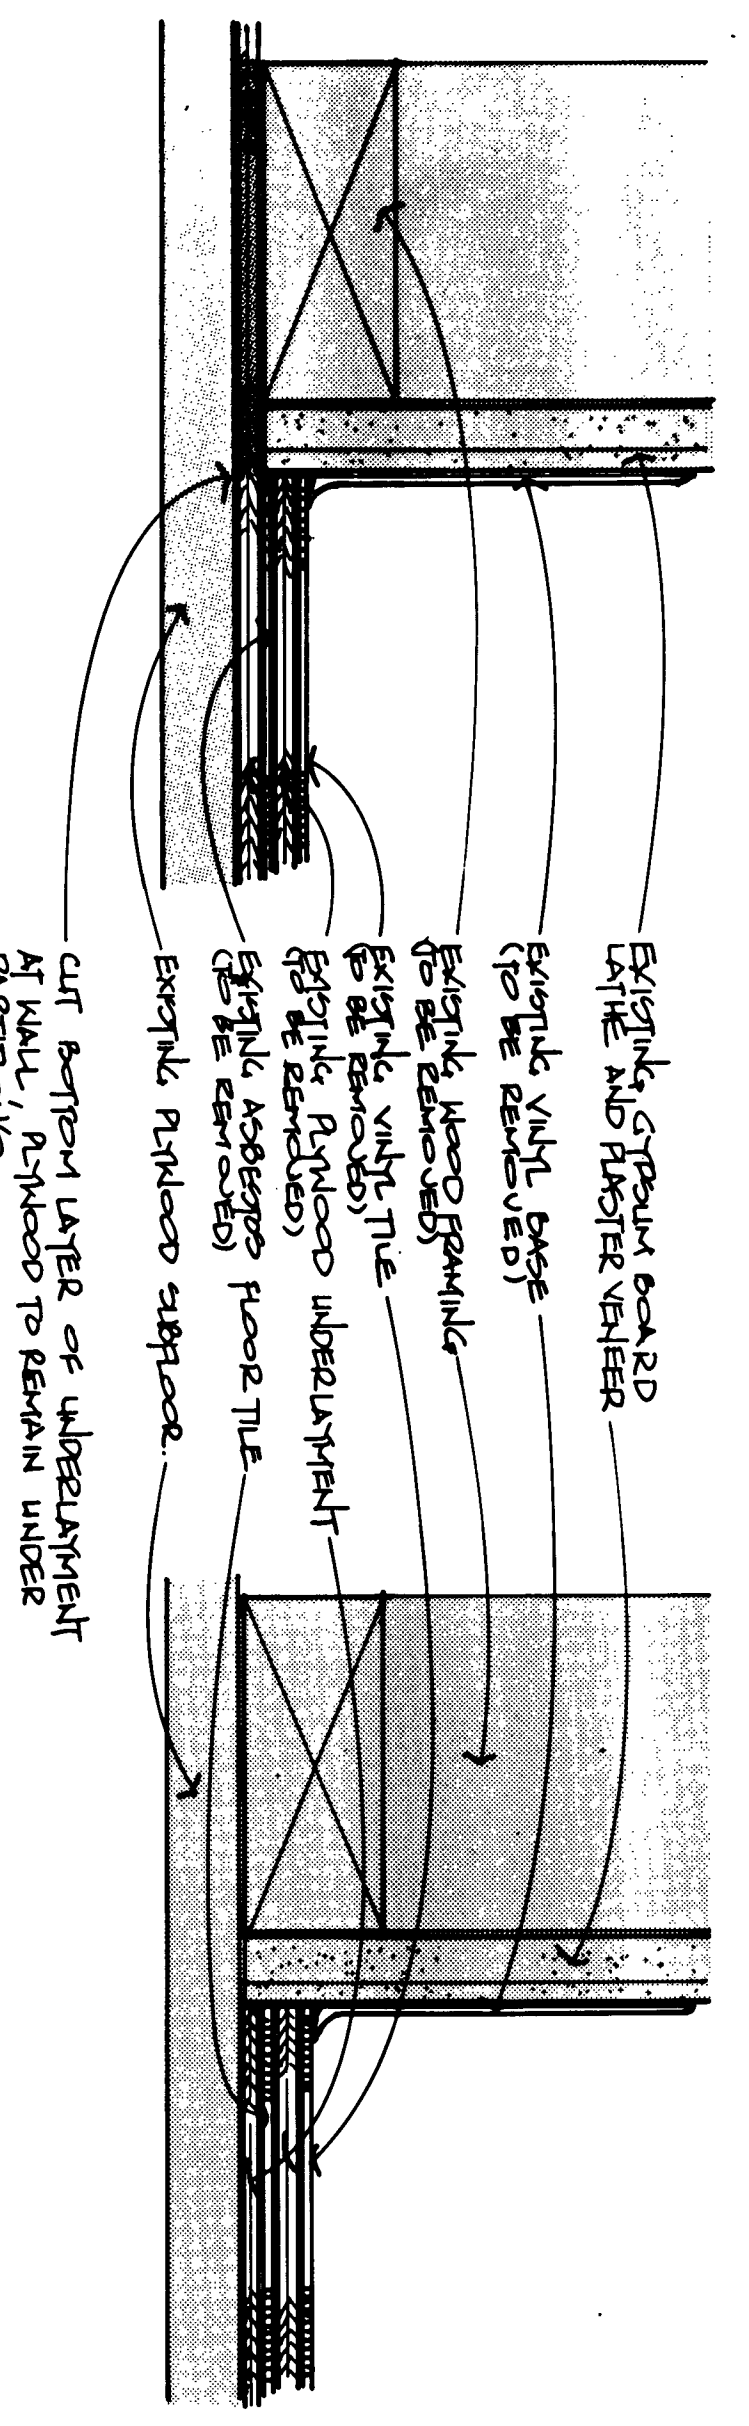 EXISTING GYPSUM BOARD
LATHE AND PLASTER VENEER
EXISTING VINYL BASE
(TO BE REMOVED)
EXISTING WOOD FRAMING
(TO BE REMOVED)
EXISTING VINYL TILE
(TO BE REMOVED)
EXISTING PLYWOOD UNDERLAYMENT
(TO BE REMOVED)
EXISTING ASBESTOS FLOOR TILE
(TO BE REMOVED)
EXISTING PLYWOOD SUBFLOOR.
CUT BOTTOM LAYER OF UNDERLAYMENT
AT WALL, PLYWOOD TO REMAIN UNDER